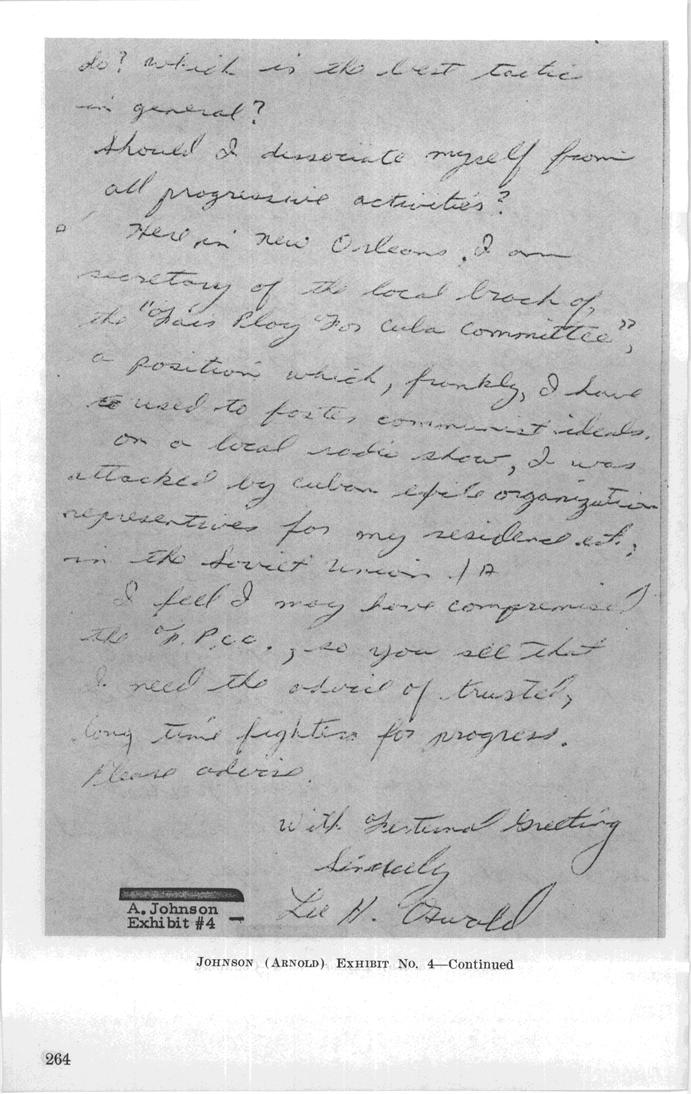 do? which is the best tactic
in general?
Should I dissociate myself from
all progressive activities?
Here, in New Orleans, I am
secretary of the local brach of
the "Fair Play For Cuba Committee",
a position which, frankly, I have
used to foster communist ideals.
on a local radio show, I was
attacked by cuban exile organization
representives for my residence ect.,
in the Soviet Union.
I feel I may have compremised
the F.P.C.C., so you see that
I need the advice of trusted,
long time fighters for progress.
Please advise.
With Greeting
Sincerely
Lee H. Oswald
A. Johnson
Exhibit #4
JOHNSON (ARNOLD) EXHIBIT NO. 4—Continued
264